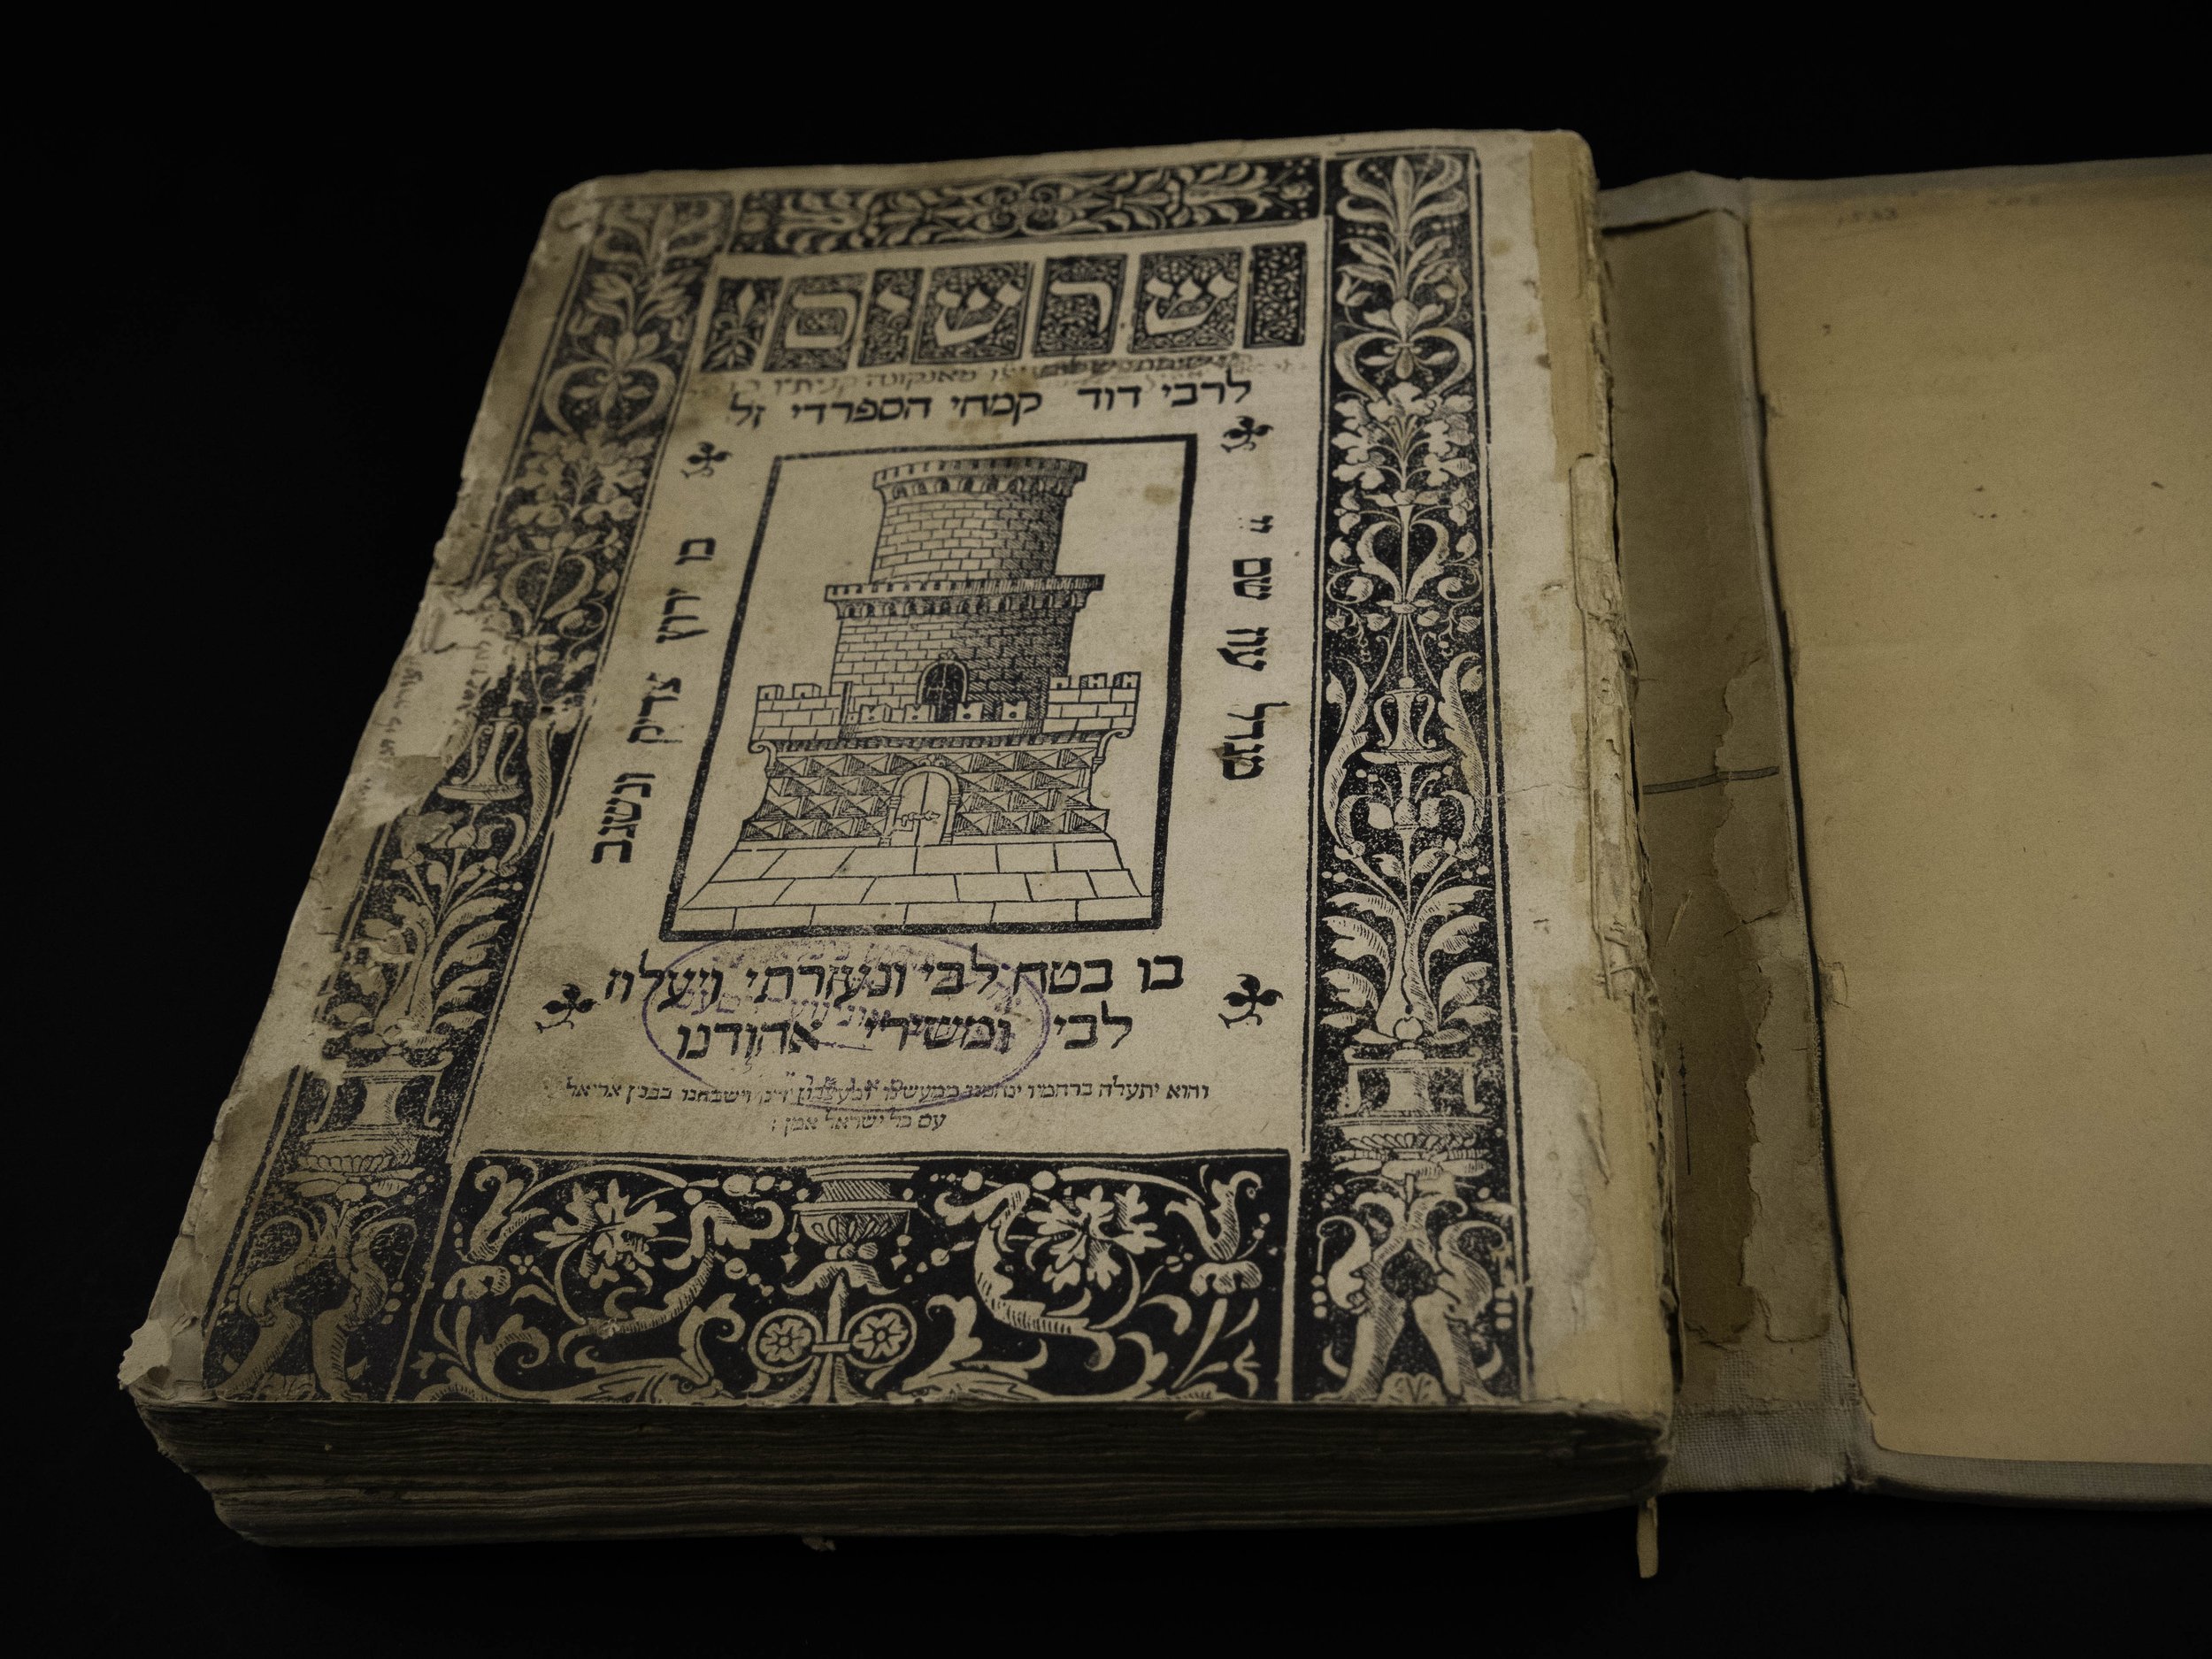 שרשים
לרבי דוד קמחי הספרדי זל
מגדל עוז שם יי
בו ירוץ צדיק ונשגב
בו בטח לבי ונעזרתי ויעלוז
לבי ומשירי אהודנו
והוא יתעלה ברחמיו ינחמנו ממעשינו ומעצבון ידינו וישבחנו בבנין אריאל
עם כל ישראל אמן :